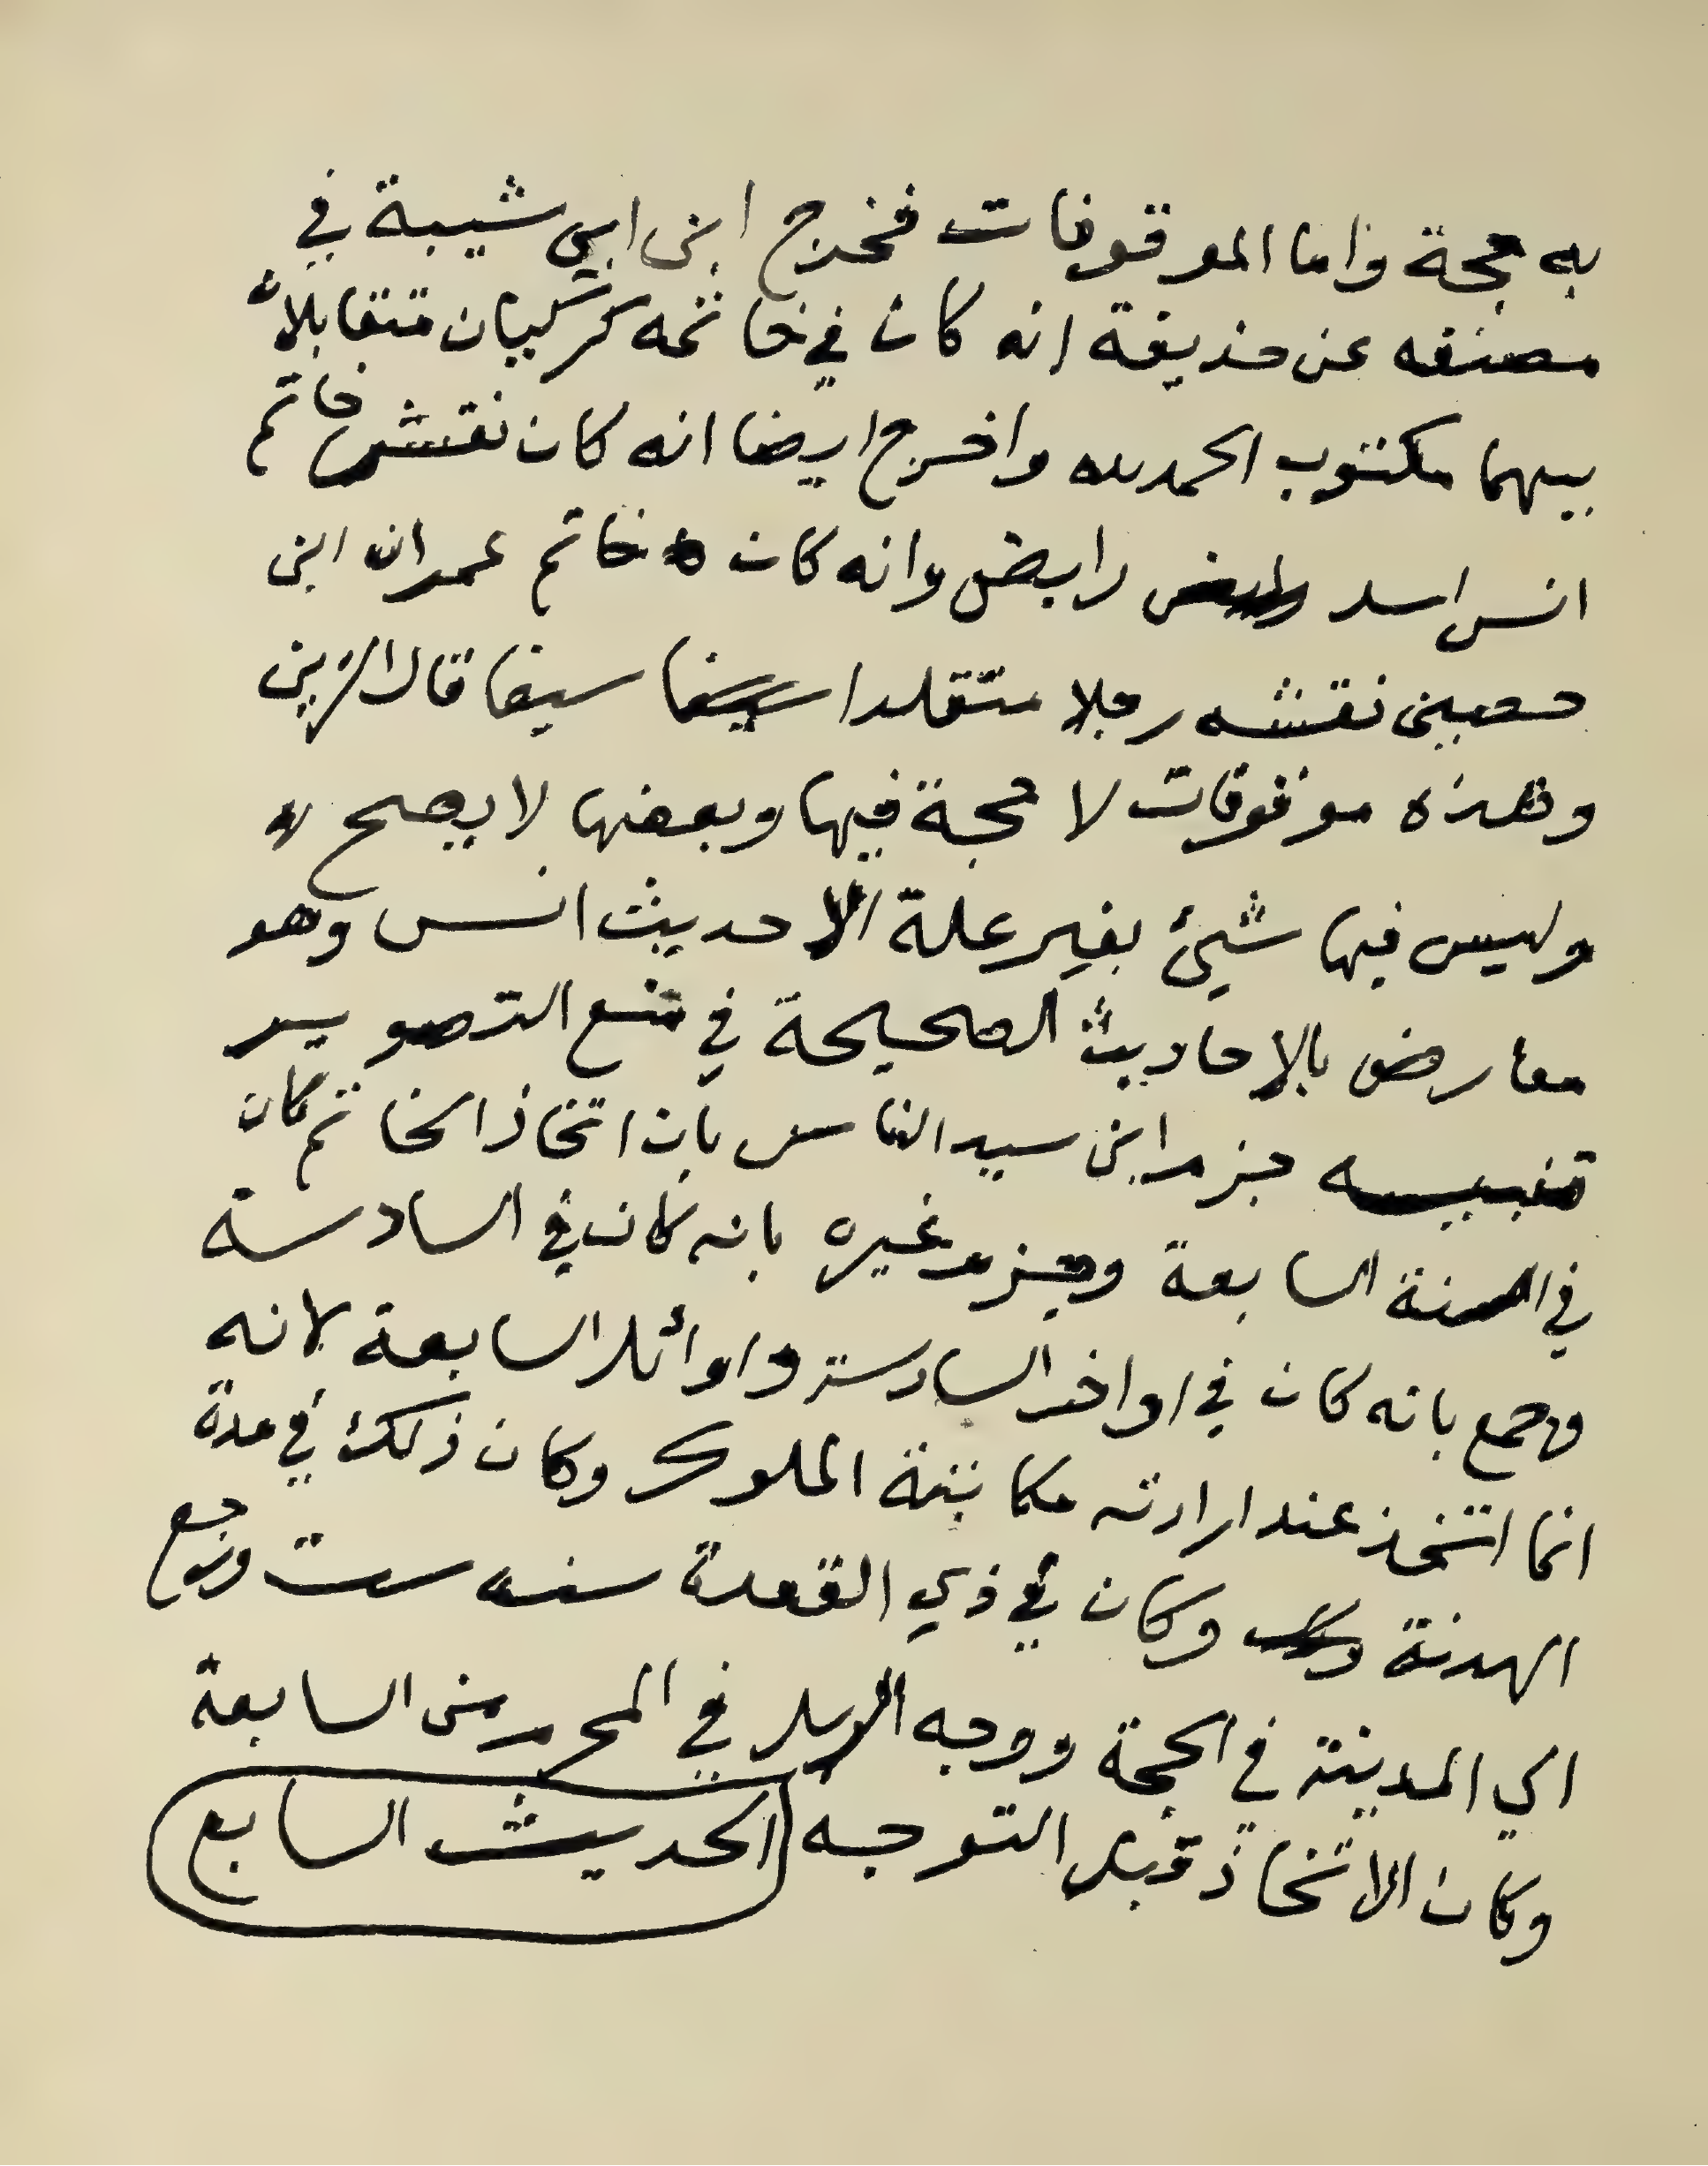 به حجة واما الموقوفات فخرج ابن ابي شيبة في
مصنفه عن حذيفة انه كان في خاتمه كركيان متقابلان
بينهما مكتوب الحمد لله واخرج ايضا انه كان نقش خاتم
انس اسد رابض وانه كان خاتم عمران ابن
حصين نقشه رجلا متقلدا سيفا قال الزين
وهذه موقوفات لا حجة فيها وبعضها لا يصح
وليس فيها شيئ بغير علة الا حديث انس وهو
معارض بالاحاديث الصحيحة في منع التصوير
تنبيه جزم ابن سيد الناس بان اتخاذ الخاتم كان
في السنة السابعة وجزم غيره بانه كان في السادسة
وجمع بانه كان في اواخر السادسة واوائل السابعة لانه
انما اتخذ عند ارادته مكاتبة الملوك وكان ذلك في مدة
الهدنة وكان في ذي القعدة سنه ست ورجع
الي المدينة في الحجة ووجه الرسل في المحرم من السابعة
وكان الاتخاذ قبل التوجه الحديث السابع